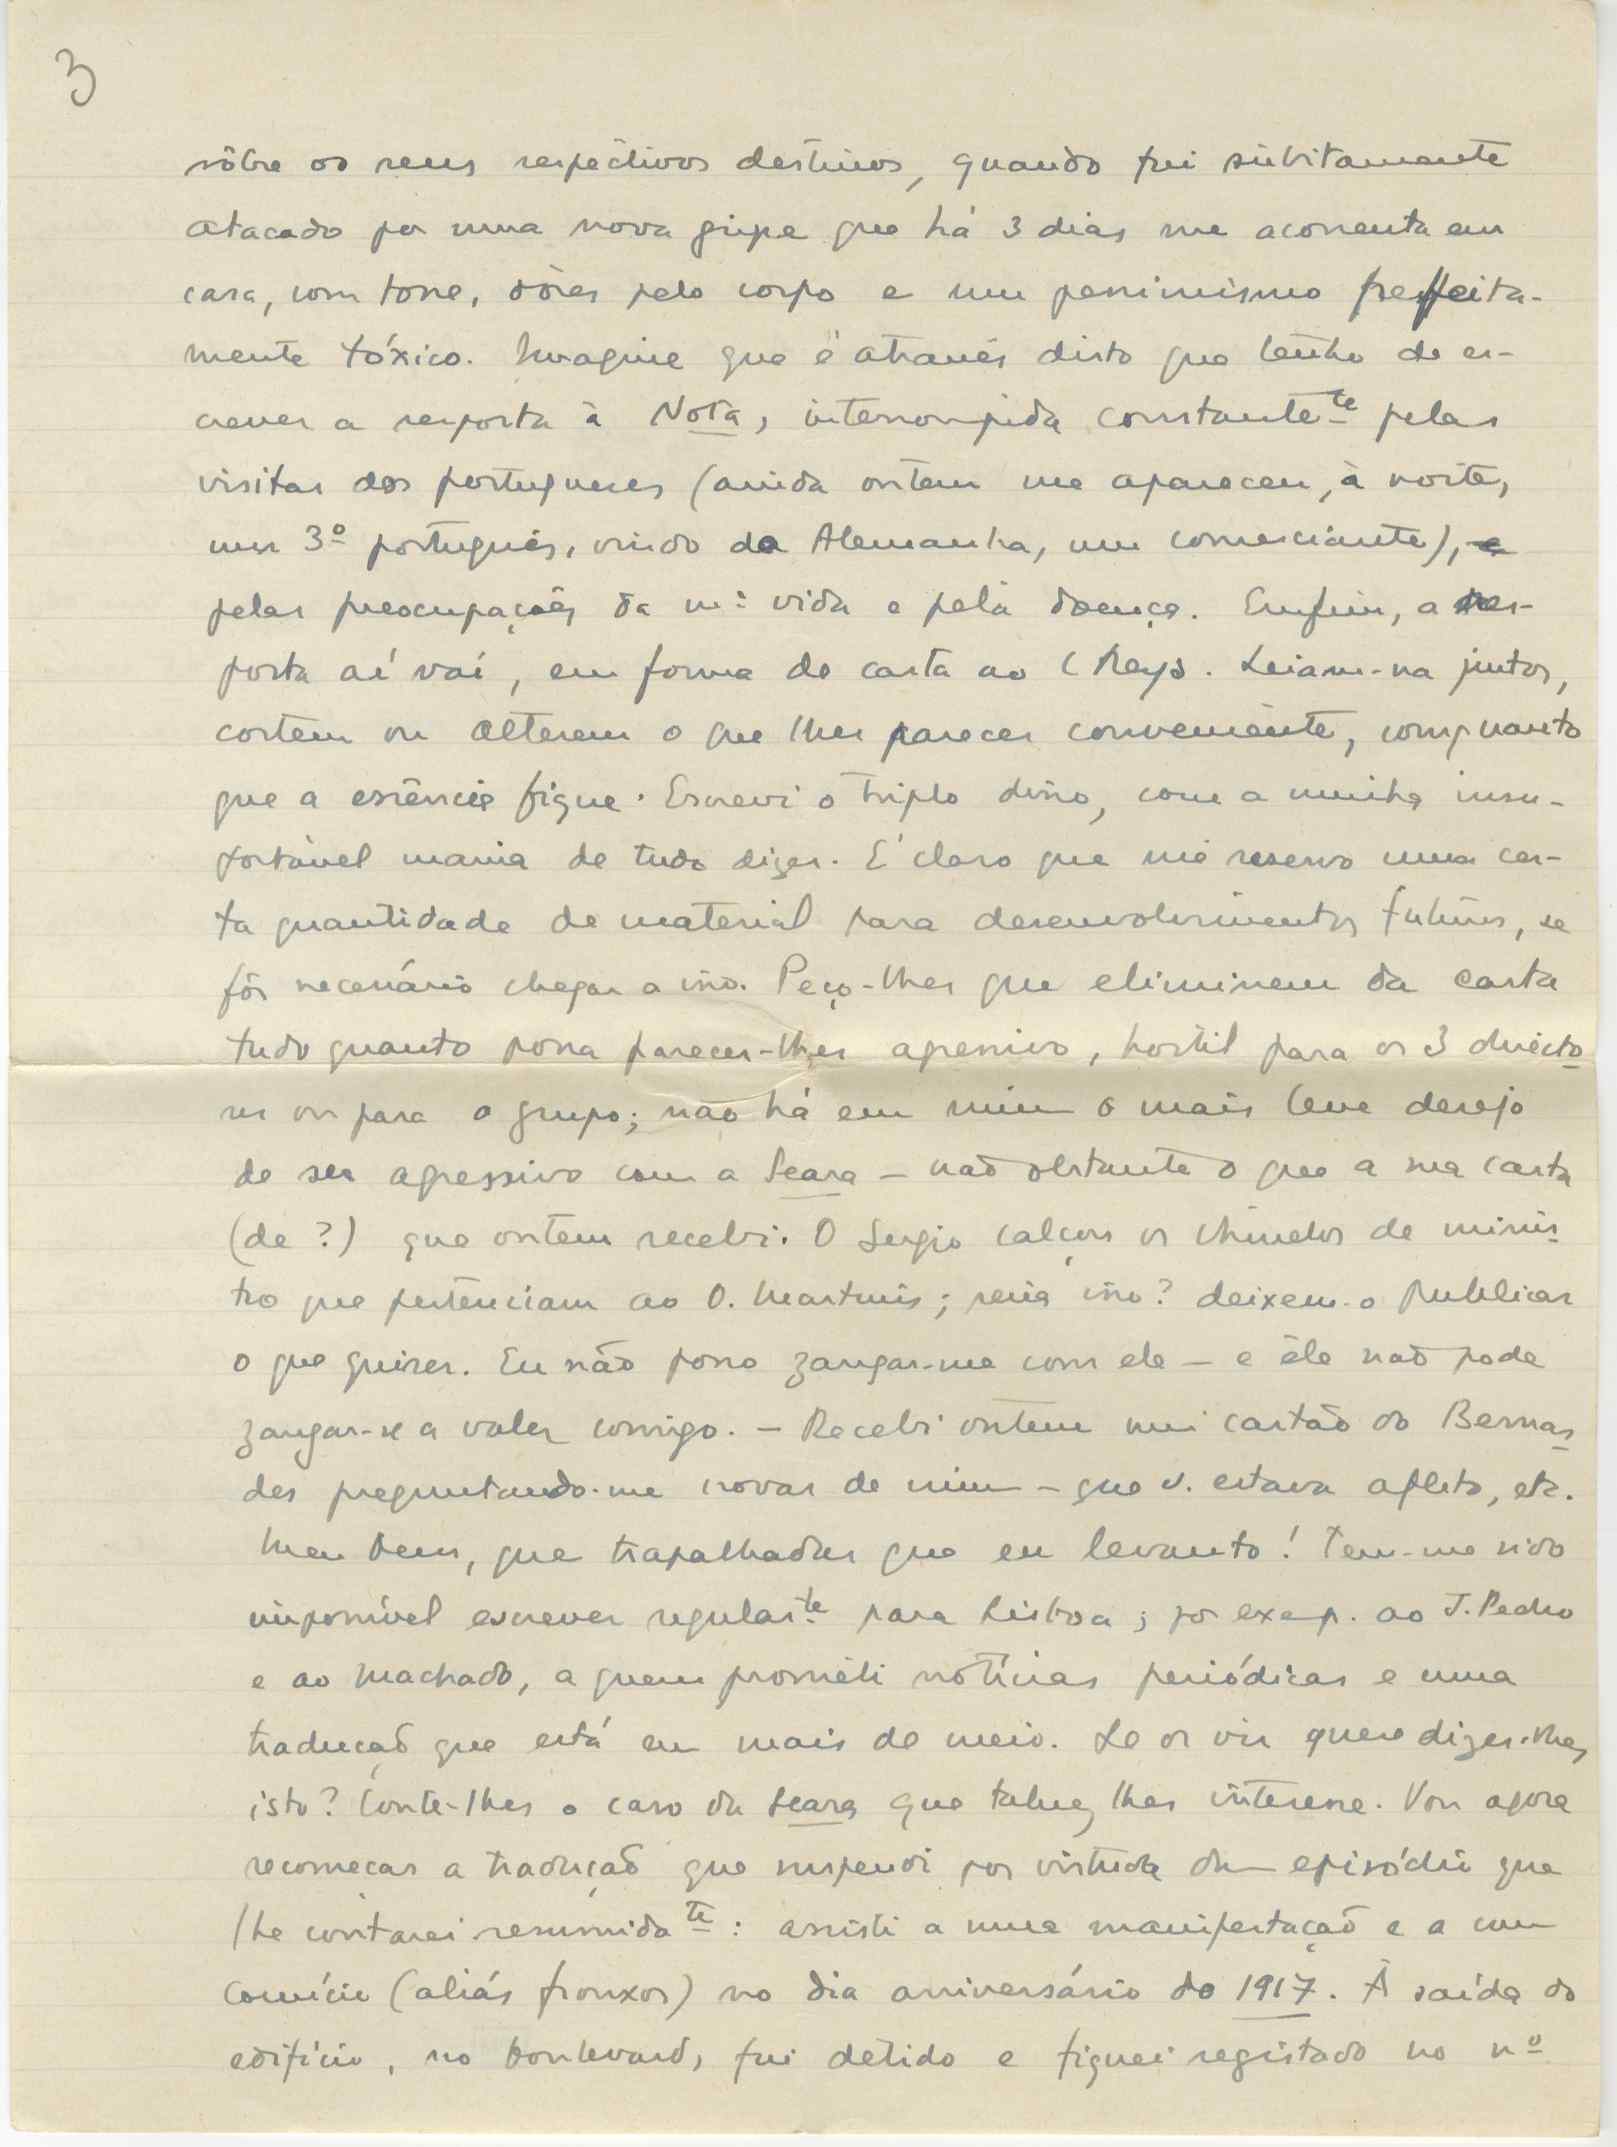 3
sôbre os seus respectivos destinos, quando fui sùbitamente
atacado por uma nova gripe que há 3 dias me acorrenta em
casa, com tosse, dôres pelo corpo e um pessimismo perfeita-
mente tóxico. Imagine que é através disto que tenho de es-
crever a resposta à Nota, interrompida constante^te pelas
visitas dos portugueses (ainda ontem me apareceu, à noite,
um 3º português, vindo da Alemanha, um comerciante),
pelas preocupações da mª vida e pela doença. Emfim, a res-
posta aí vai, em forma de carta ao C Reys. Leiam-na juntos,
cortem ou alterem o que lhes parecer conveniente, comquanto
que a essência fique. Escrevi o triplo disso, com a minha insu-
portável mania de tudo dizer. É claro que me reservo uma cer-
ta quantidade de material para desenvolvimentos futuros, se
fôr necessário chegar a isso. Peço-lhes que eliminem da carta
tudo quanto possa parecer-lhes agressivo, hostil para os 3 directo-
res ou para o grupo; não há em mim o mais leve desejo
de ser agressivo com a Seara – não obstante o que a sua carta
(de ?) que ontem recebi. O Sergio calçou os chinelos de minis-
tro que pertenciam ao O. Martins; seria isso? deixem-o publicar
o que quiser. Eu não posso zangar-me com ele – e êle não pode
zangar-se a valer comigo. – Recebi ontem um cartão do Bernar-
des preguntando-me novas de mim – que v. estava aflito, etc.
Meu Deus, que trapalhadas que eu levanto! Tem-me sido
impossível escrever regular^te para Lisboa; por exep. ao J. Pedro
e ao Machado, a quem prometi notícias periódicas e uma
tradução que está em mais de meio. Se os vir quere dizer-lhes
isto? Conte-lhes o caso da Seara que talvez lhes interesse. Vou agora
recomeçar a tradução que suspendi por virtude dum episódio que
lhe contarei resumida^te: assisti a uma manifestação e a um
comício (aliás frouxos) no dia aniversário de 1917. À saída do
edifício, no boulevard, fui detido e fiquei registado no nº